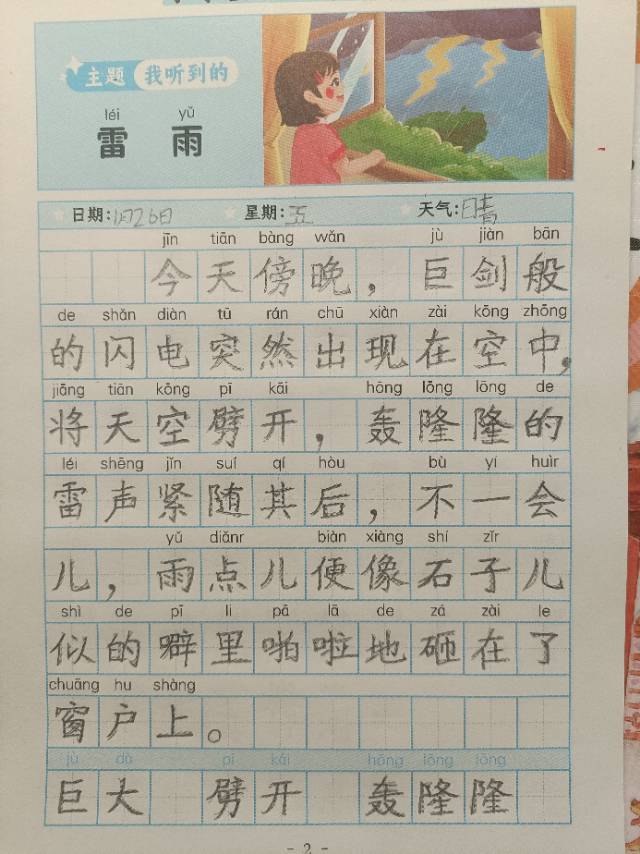 主题 我听到的
léi yǔ
雷 雨
日期:1月26日 星期:五 天气:晴
jīn tiān bàng wǎn jù jiàn bān
今天傍晚，巨剑般
de shǎn diàn tū rán chū xiàn zài kōng zhōng
的闪电突然出现在空中，
jiāng tiān kōng pī kāi hōng lōng lōng de
将天空劈开，轰隆隆的
léi shēng jǐn suí qí hòu bù yí huìr
雷声紧随其后，不一会
yǔ diǎnr biàn xiàng shí zǐr
儿，雨点儿便像石子儿
shì de pī li pā lā de zá zài le
似的噼里啪啦地砸在了
chuāng hu shàng
窗户上。
jù dà pī kāi hōng lōng lōng
巨大 劈开 轰隆隆
- 2 -